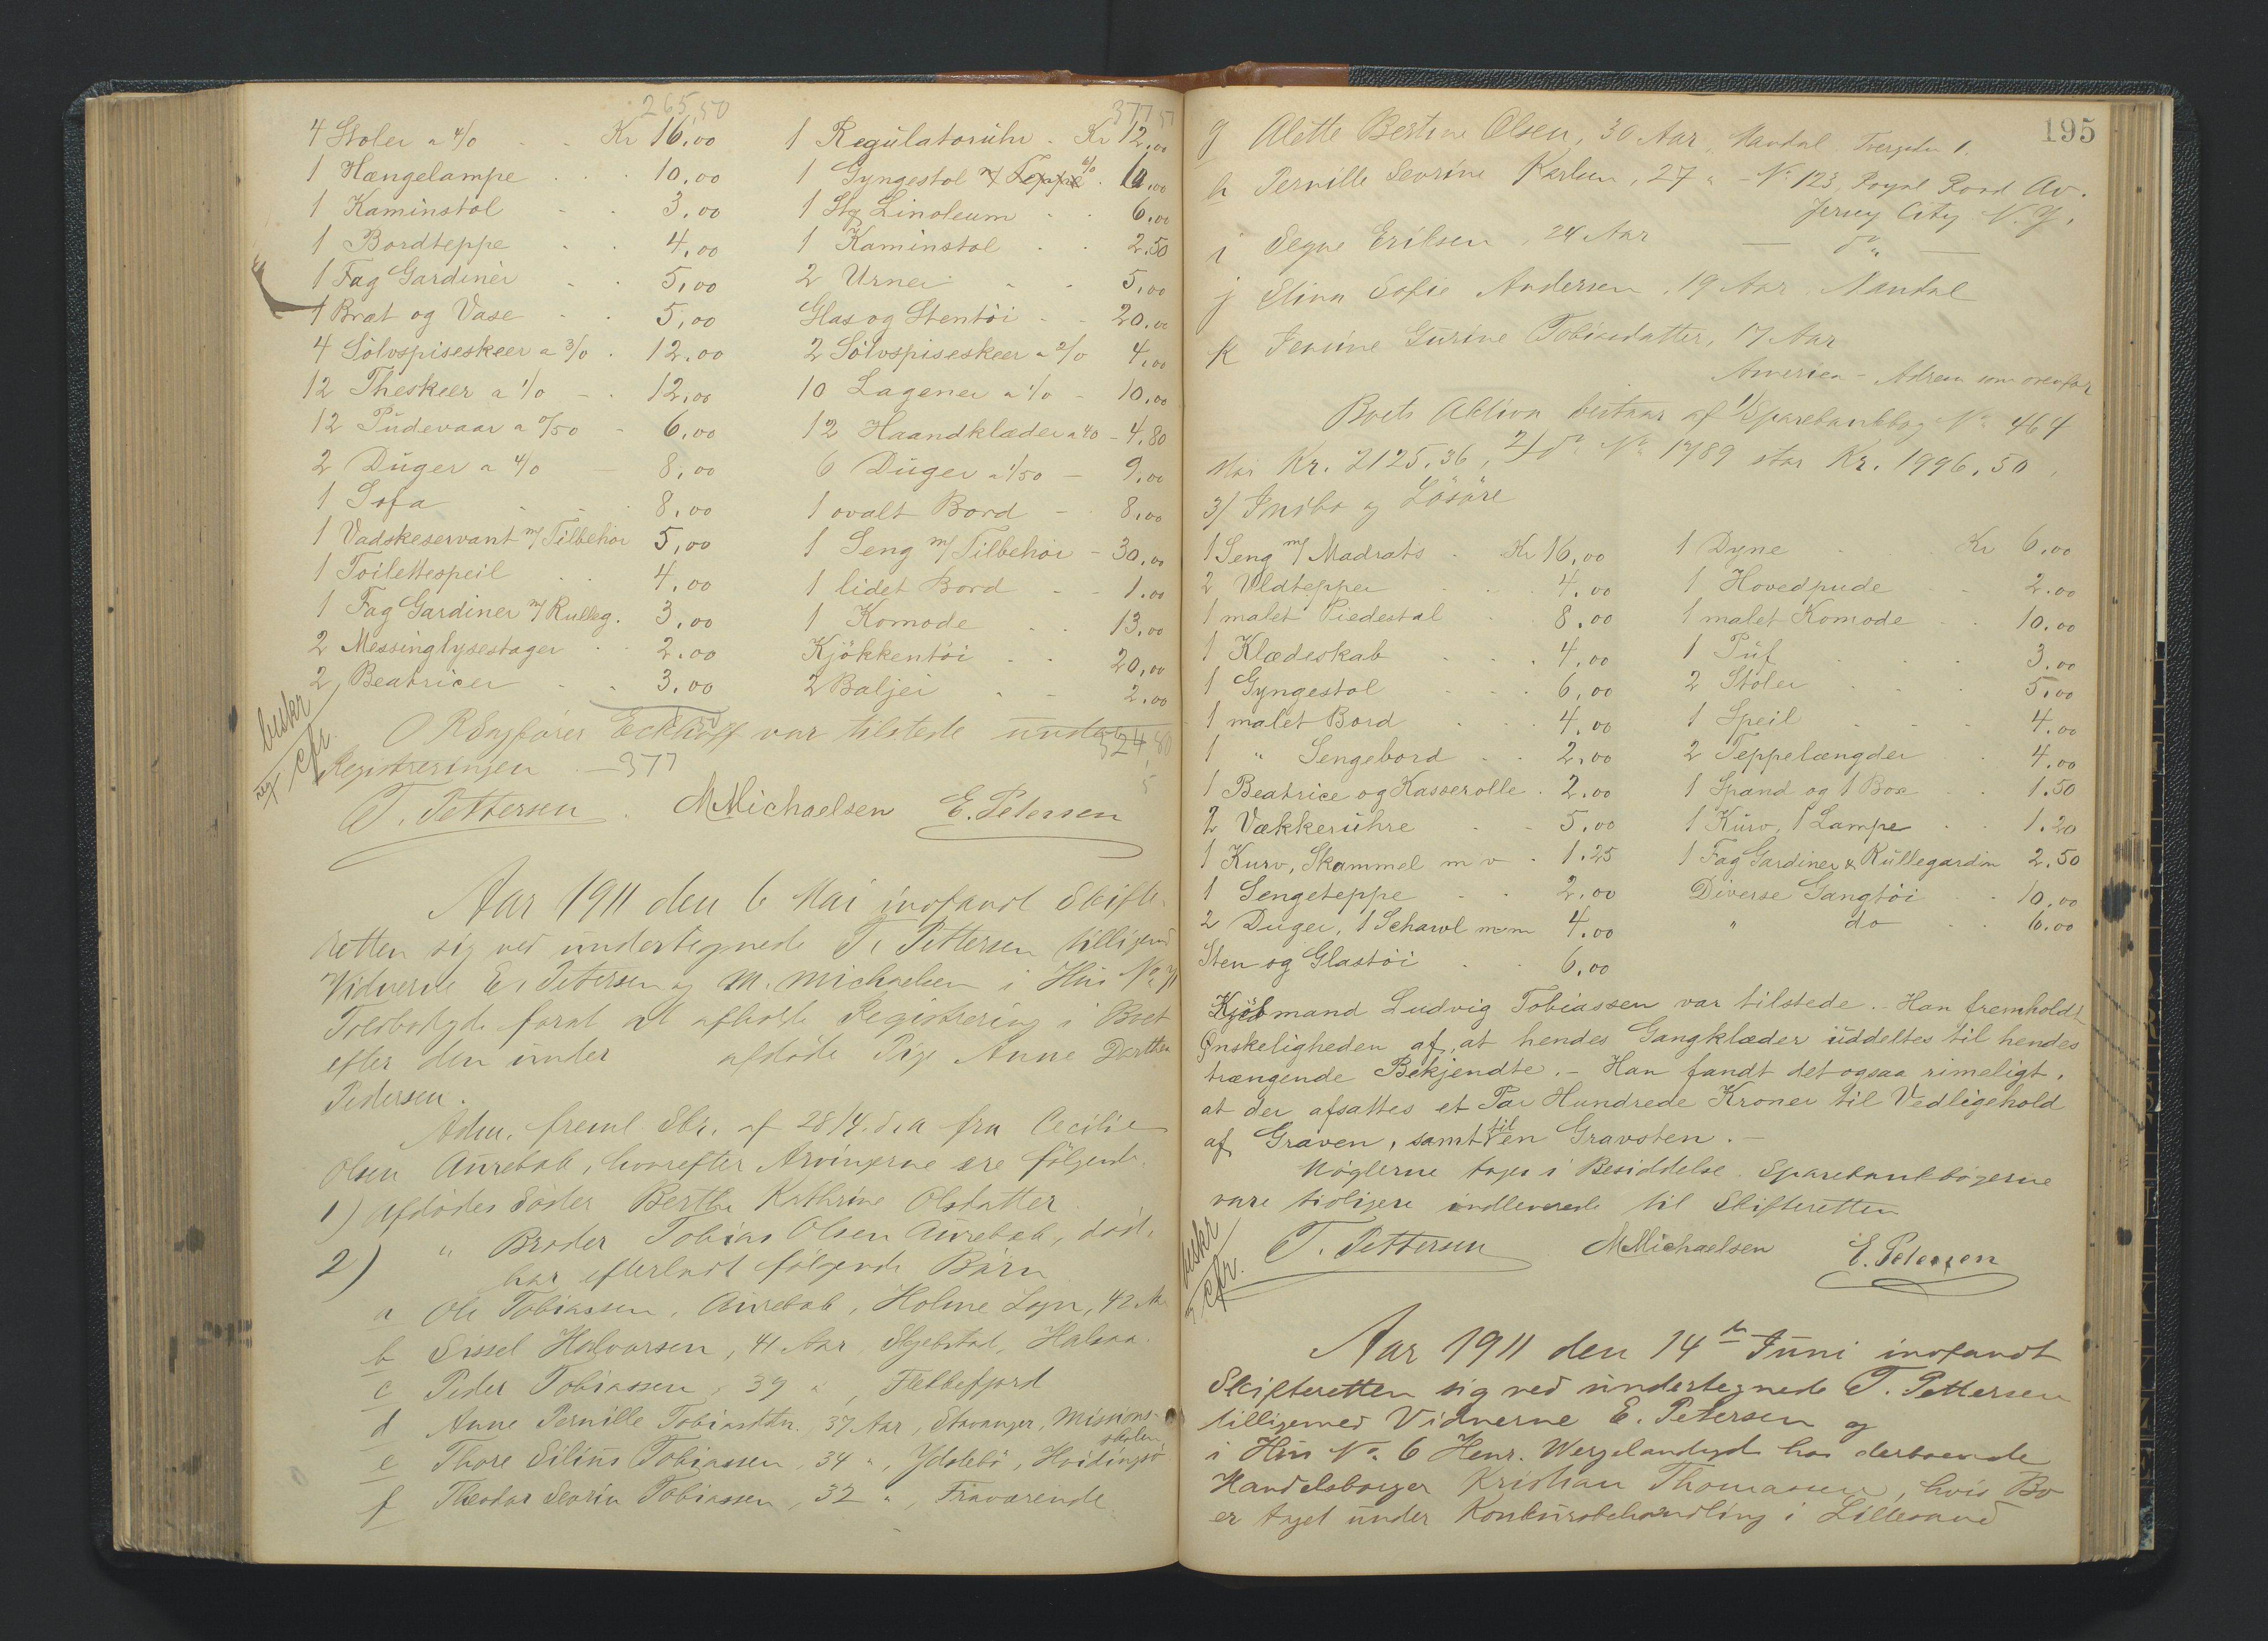 265,50
4 Stoler a 4/0 Kr 16,00
1 Hængelampe 10,00
1 Kaminstol 3,00
1 Bordteppe 4,00
1 Fag Gardiner 5,00
1 Bræt og Vase 5,00
4 Sölvspiseskeer a 3/0 12,00
12 Theskeer a 1/0 12,00
12 Pudevaar a 0/50 6,00
2 Duger a 4/0 8,00
1 Sofa 8,00
1 Vadskeservant m/ Tilbehör 5,00
1 Toilettespeil 4,00
1 Fag Gardiner m/ Rulleg. 3,00
2 Messinglysestager 2,00
2 Beatricer 3,00
377
1 Regulatoruhr Kr 12,00
1 Gyngestol m/ Teppe
1 Stg Linoleum 6,00
1 Kaminstol 2.50
2 Urner 5,00
Glas og Stentöi 20,00
2 Sölvspiseskeer a 2/0 4,00
10 Lagener a 1/0 10,00
12 Haandklæder a 40 4,80
6 Duger a 1/50 9,00
1 ovalt Bord 8,00
1 Seng m/ Tilbehör 30,00
1 lidet Bord 1.00
1 Komode 13,00
Kjökkentöi 20,00
2 Baljer 2,00
beskr
cfr.
ORSagförer Eckhoff var tilstede under
Registreringen. 377
T. Pettersen. MMichaelsen E. Petersen
Aar 1911 den 6 Mai indfandt Skifte-
retten sig ved undertegnede T. Pettersen tilligemed
Vidnerne E. Petersen og M. Michaelsen i Hus No 71
Toldbodgd. forat at afholde Registrering i Boet
efter den under afdöde Pige Anne Dorthea
Pedersen.
Adm. freml Skr. af 28/4. d.a fra Cecilie
Olsen Aurebæk, hvorefter Arvingerne ere fölgende.
1) Afdödes Söster Berthe Kathrine Olsdatter
2) " Broder Tobias Olsen Aurebæk, död,
har efterladt fölgende Börn
a Ole Tobiassen, Aurebæk, Holme Sogn, 42 Aar
b Sissel Halvorsen, 41 Aar, Skjebstad, Halsaa.
c Peder Tobiassen, 39 ", Flekkefjord
d Anne Pernille Tobiasdtr. 37 Aar, Stavanger, Missions-
skolen
e Thore Silius Tobiassen, 34 ", Hvidingsö
f Theodor Severin Tobiassen, 32 ", Fraværende
195
g Alette Bertine Olsen, 30 Aar, Mandal, Tvergaden 1.
h Pernille Severine Karlsen, 27 " No 123, Royal Road Av.
Jersey City N. Y.
i Signe Eriksen, 24 Aar — do —
j Elina Sofie Andersen, 19 Aar, Mandal
k Jenine Gurine Tobiasdatter, 17 Aar
America - Adresse som ovenfor
Boets Aktiva bestaar af 1/ Sparebankbog No 464
stor Kr. 2125.36, 2/ do No 1789 stor Kr. 1996.50,
3/ Indbo og Lösöre
1 Seng m/ Madrats Kr 16,00
2 Uldtepper 4,00
1 malet Piedestal 8.00
1 Klædeskab 4,00
1 Gyngestol 6,00
1 malet Bord 4,00
1 " Sengebord 2,00
1 Beatrice og Kasserolle 2,00
2 Vækkeruhre 5,00
1 Kurv, Skammel m v 1.25
1 Sengeteppe 2,00
2 Duger, 1 Schawl m m 4.00
Sten og Glastöi 6,00
1 Dyne Kr 6,00
1 Hovedpude 2.00
1 malet Komode 10.00
1 Puf 3,00
2 Stoler 5,00
1 Speil 4,00
2 Teppelængder 4,00
1 Spand og 1 Box 1.50
1 Kurv, 1 Lampe 1.20
1 Fag Gardiner & Rullegardin 2,50
Diverse Gangtöi 10,00
" do 6.00
Kjöbmand Ludvig Tobiassen var tilstede. - Han fremholdt
Ønskeligheden af, at hendes Gangklæder uddeltes til hendes
trængende Bekjendte. - Han fandt det ogsaa rimeligt,
at der afsattes et Par Hundrede Kroner til Vedligehold
af Graven, samt til en Gravsten. -
Nöglerne toges i Besiddelse. Sparebankbögerne
vare tidligere indleverede til Skifteretten
beskr
cfr.
T. Pettersen MMichaelsen E. Petersen
Aar 1911 den 14de Juni indfandt
Skifteretten sig ved undertegnede T. Pettersen
tilligemed Vidnerne E. Petersen og
i Hus No 6 Henr. Wergelandsgd. hos derboende
Handelsborger Kristian Thomassen, hvis Bo
er taget under Konkursbehandling i Lillesand